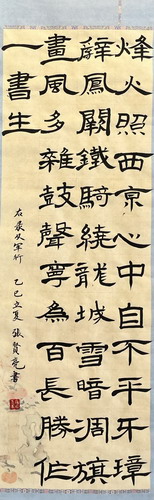 烽火照西京心中自不平牙璋
辭鳳闕鐵騎繞龍城雪暗凋旗
畫風多雜鼓聲寧為百長勝作
一書生
右 軍行 乙巳立夏 張賢亮書